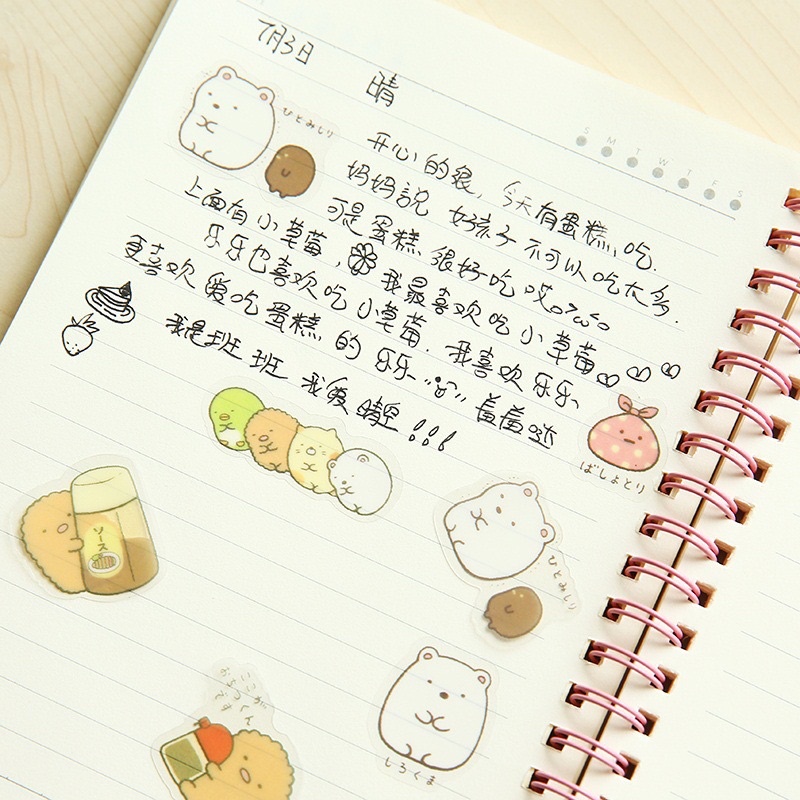 7月3日 晴
S M T W T F S
ひとみしり
开心的狠，今天有蛋糕吃.
妈妈説 女孩子不可以吃太多.
可是蛋糕很好吃哎
上面有小草莓，我最喜欢吃小草莓
乐乐也喜欢吃小草莓. 我喜欢乐乐、
更喜欢爱吃蛋糕的乐乐
我是班班 我爱晴空!!!
ばしょとり
ソース
ひとみしり
しろくま
ここが
おちつくん
です